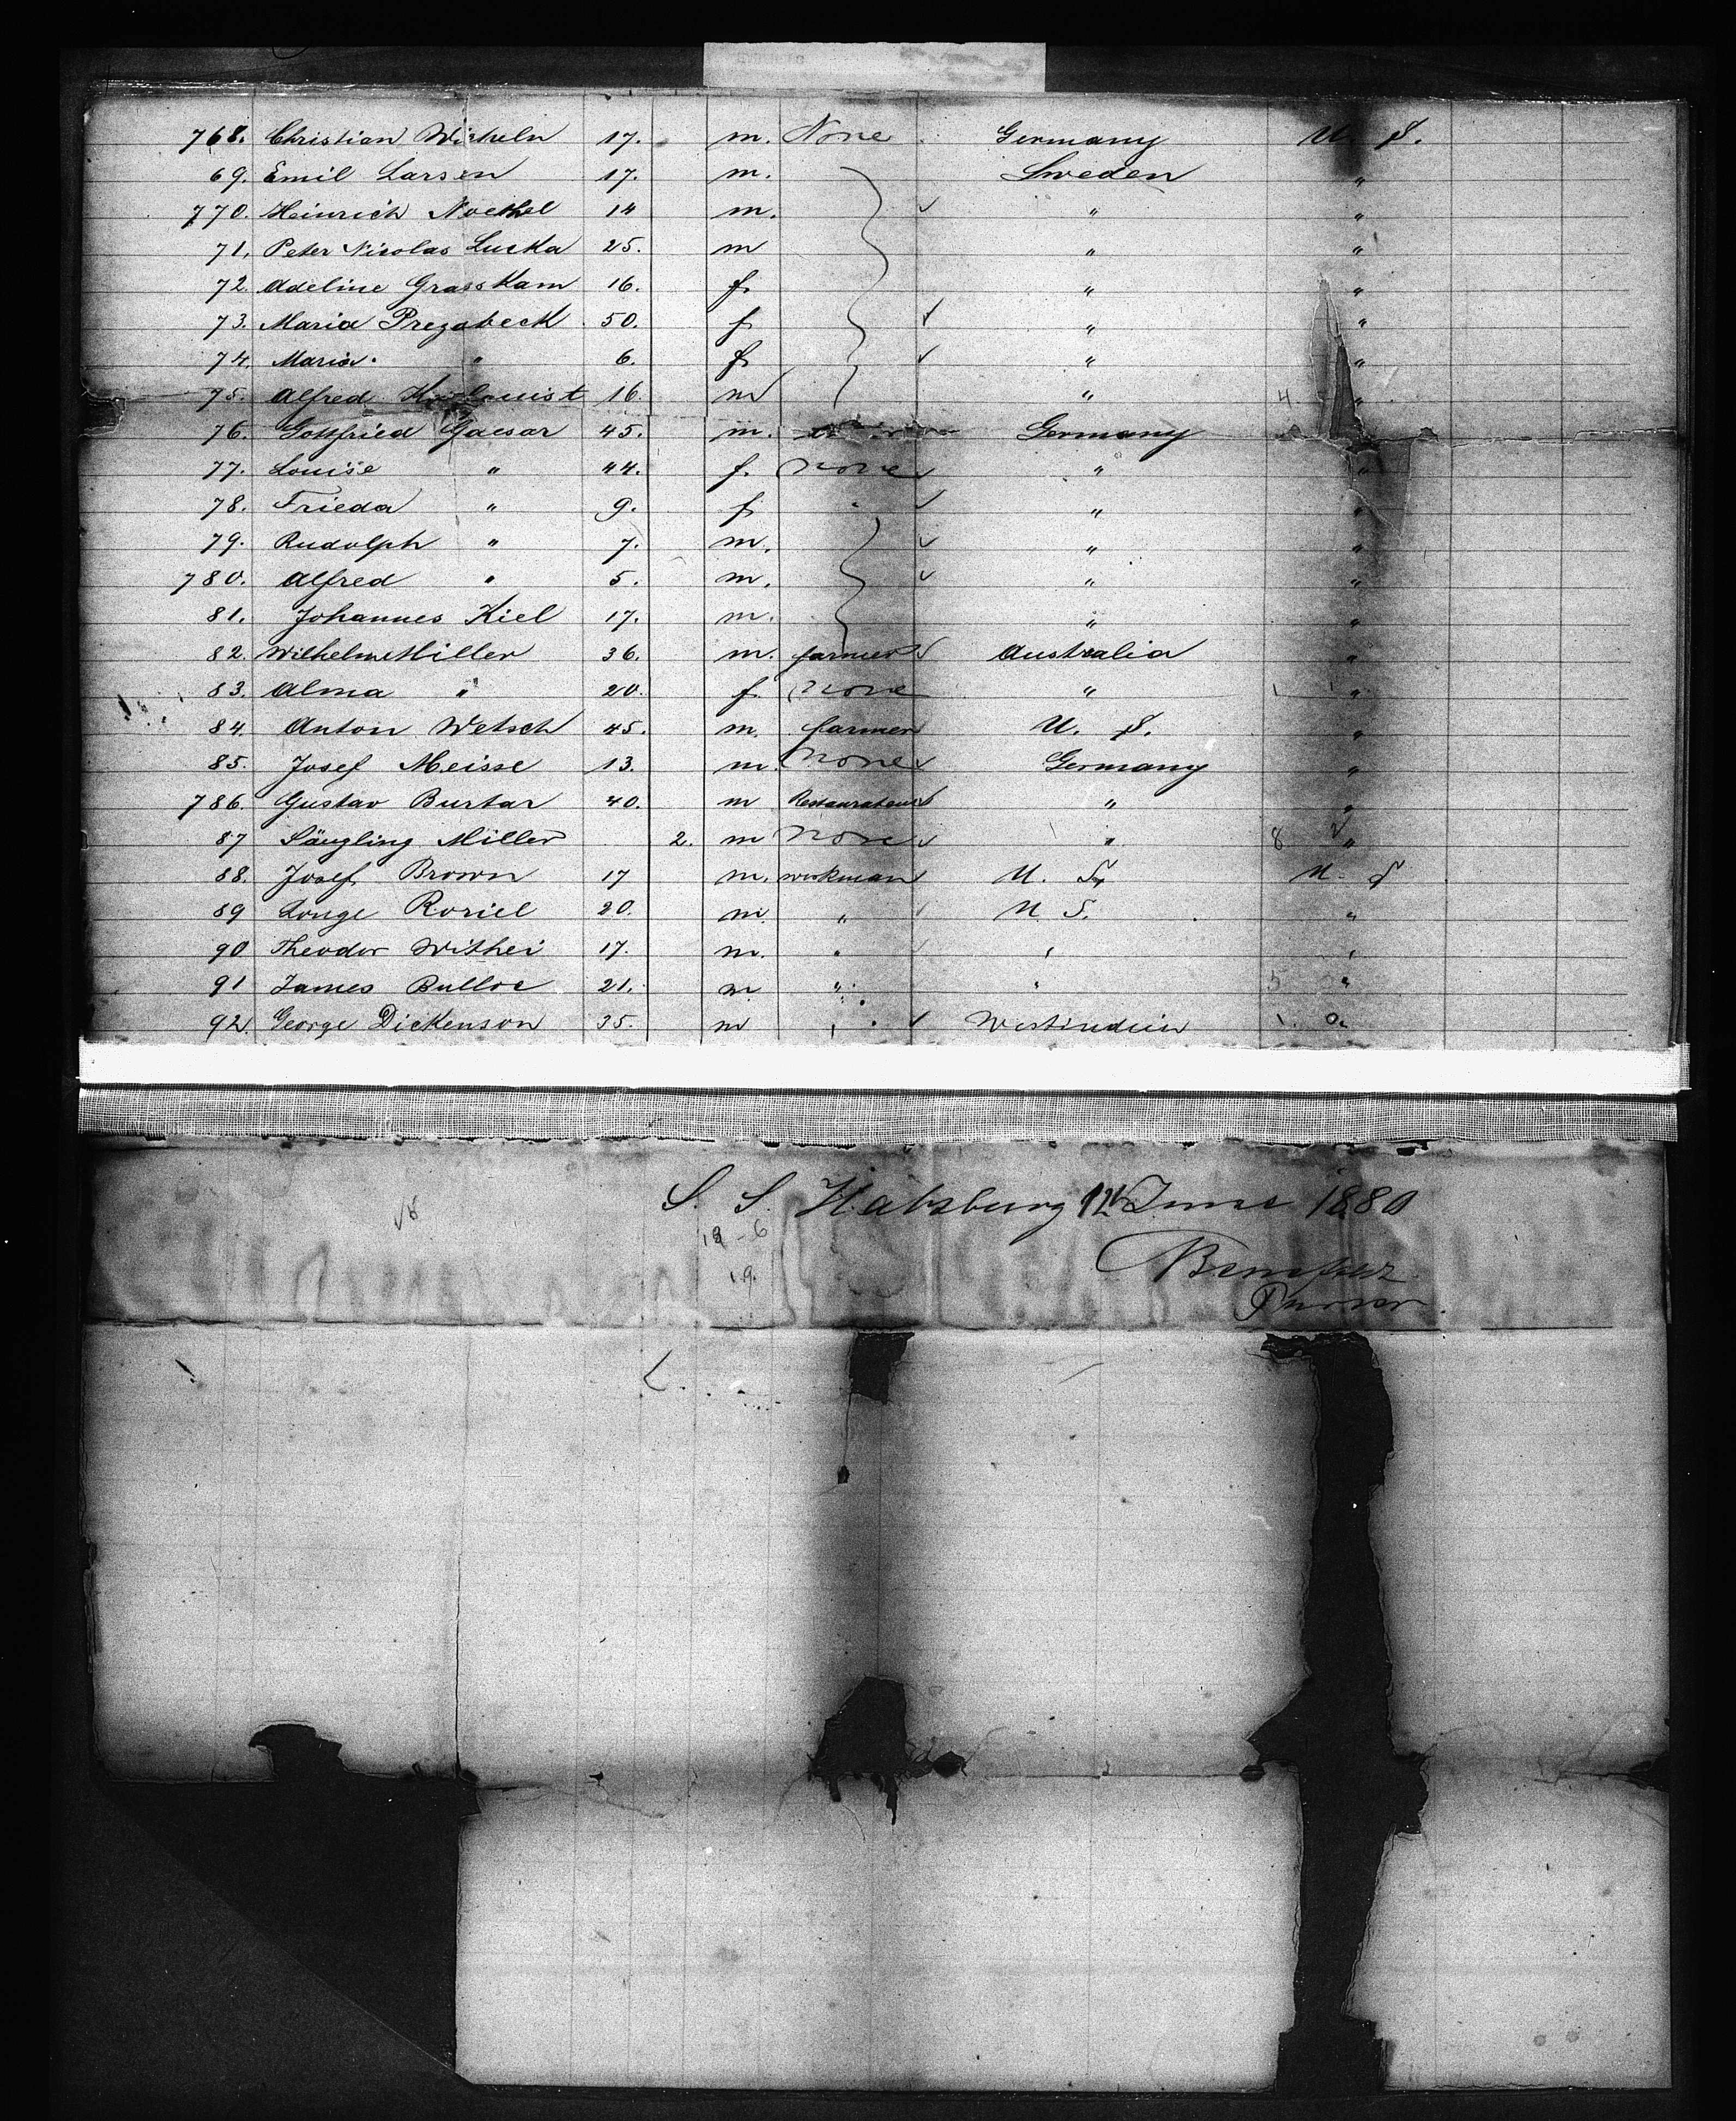 768. Christian Wilheln 17. m. None Germany U. S.
69. Emil Larsen 17. m. Sweden "
770. Heinrich Noethel 14 m. " "
71. Peter Nicolas Lucka 25. m " "
72. Adeline Grasskam 16. f. " "
73. Maria Prezabeck 50. f " "
74. Maria " 6. f " "
75. Alfred 16. m " 4 "
76. Gottfried Gaesar 45. m. Germany
77. Louise " 44. f. None " "
78. Frieda " 9. f " " "
79. Rudolph " 7. m. " "
780. Alfred " 5. m. " "
81. Johannes Kiel 17. m. " "
82. Wilhelm Miller 36. m. farmer Australia "
83. Alma " 20. f None " 1 "
84. Anton Wetsch 45. m. farmer U. S. "
85. Josef Meisse 13. m. None Germany "
786. Gustav Burtar 40. m Restaurateur " "
87 Säugling Miller 2. m None " 8 "
88. Josef Brown 17 m. workman U. S. U. S
89 Longe Roriel 20. m. " U S. "
90 Theodor Withei 17. m. " " "
91 James Bulloc 21. m " " 5 "
92. George Dickenson 35. m " Westindien 1. "
S. S. Habsburg 12th June 1880
18 - 6
19.
Purser.